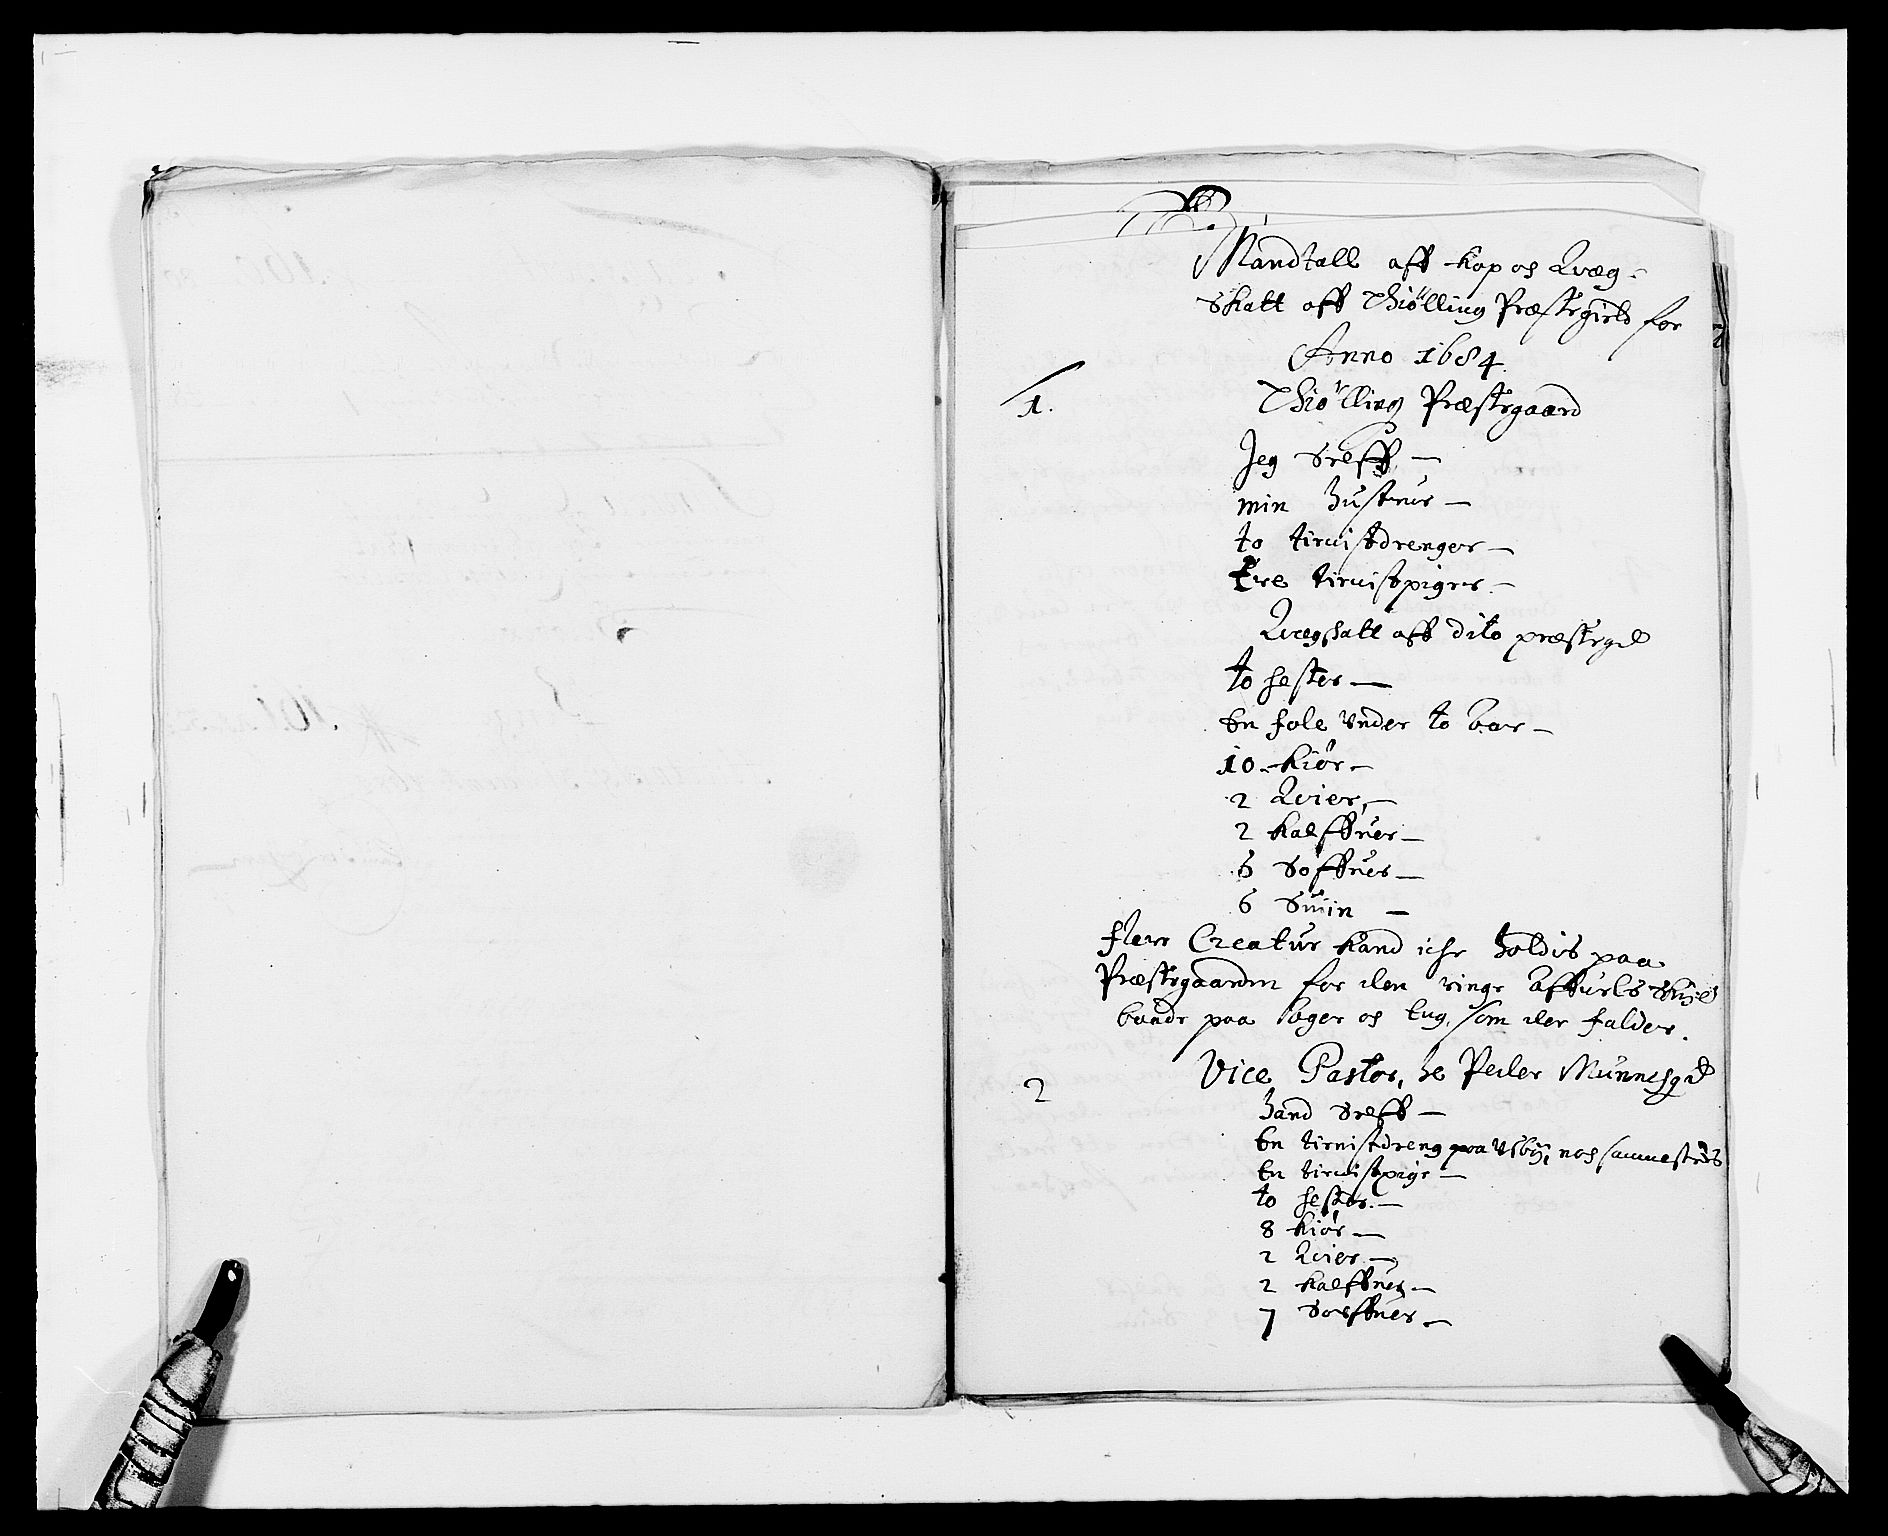 Mandtall aff kop og Qvæg-
skatt aff Thiølling Præstegield for
Anno 1684.
1.
Thiølling Præstegaard
Jeg Self —
min Hustrue —
to tienistdrenger —
tre tienistpiger —
Qvegskatt aff dito præstegel
to hester —
En fole under to Aar —
10 kiør —
2 Qvier, —
2 kalffuer —
6 Soffuer —
6 Suiin —
flere Creatur kand iche holdis paa
Præstegaarden for den ringe skyld
baade paa ager og Eng, som der falder.
2
Vice Pastor, he Peder
hand Self —
En tienistdreng paa nog sammesteds
En tienistpige —
to hester. —
8 kiør —
2 Qvier —
2 kalffuer —
7 Souffuer —